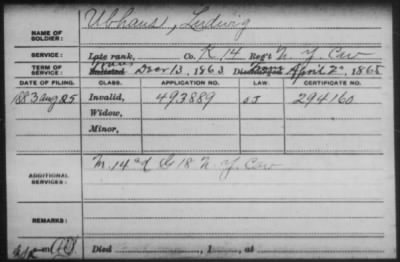 NAME OF SOLDIER: Ubhaus, Ludwig
SERVICE: Late rank, Co. K 14 Reg't N. Y. Cav
TERM OF SERVICE: Enlisted Decr 13, 1863 Discharged April 2, 1865
DATE OF FILING. CLASS. APPLICATION NO. LAW. CERTIFICATE NO.
1883 Aug 25 Invalid, 493889 294160
Widow,
Minor,
ADDITIONAL SERVICES: M. 14 & G 18 N. Y. Cav
REMARKS:
Died , 1 , at